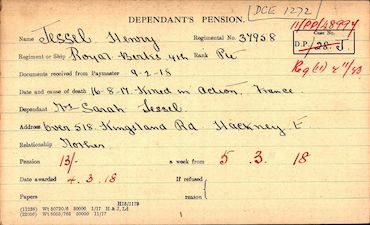 DEPENDANT'S PENSION.
DCE 1272
Name Jessel Henry Regimental No. 37958
11/PP/48997
Case No.
D.P./28.J.
Regiment or Ship Royal Berks 4th Rank Pte
Documents received from Paymaster 9-2-18
Date and cause of death 16-8-17. Killed in Action, France
Dependant Mrs Sarah Jessel
Address over 518 Kingsland Rd Hackney E
Relationship Mother
Pension 13/- a week from 5 . 3 . 18
Date awarded 4. 3. 18 If refused
reason
Papers H16/1179
(11236) Wt 50720/6 50000 1/17 H & J, Ld
50000 11/17